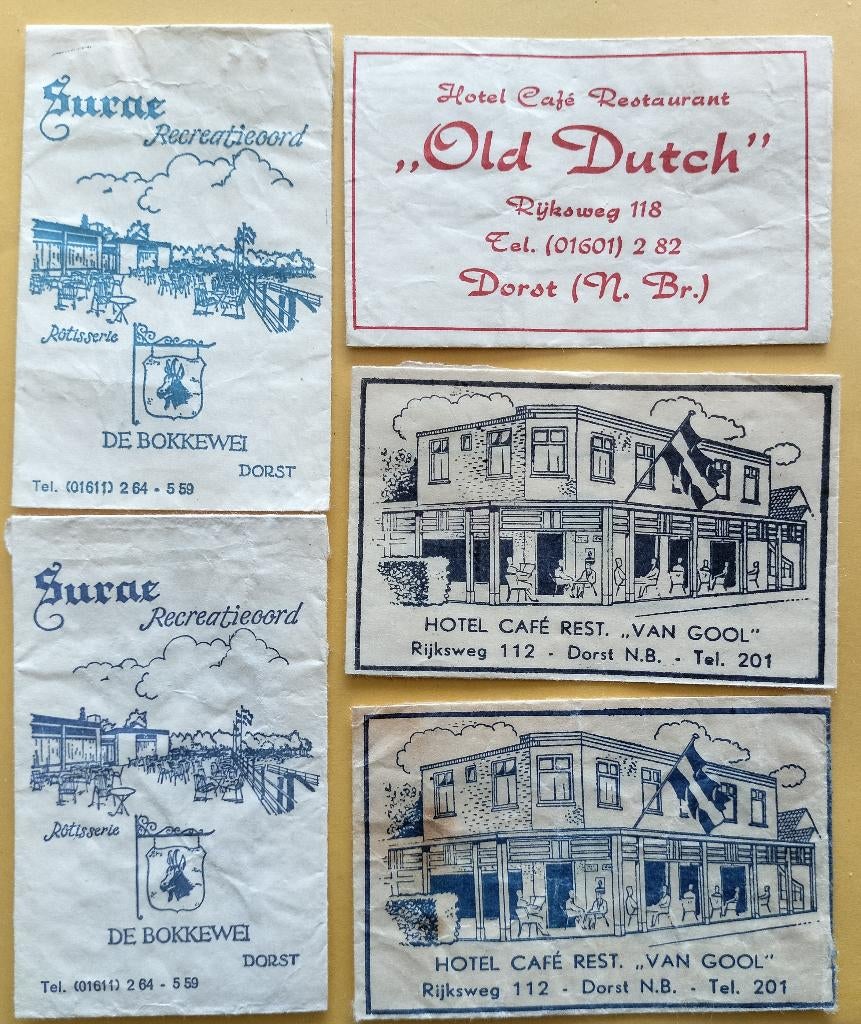 Surae
Recreatieoord
Rôtisserie
DE BOKKEWEI
DORST
Tel. (01611) 2 64 - 5 59
Surae
Recreatieoord
Rôtisserie
DE BOKKEWEI
DORST
Tel. (01611) 2 64 - 5 59
Hotel Café Restaurant
„Old Dutch”
Rijksweg 118
Tel. (01601) 2 82
Dorst (N. Br.)
HOTEL CAFÉ REST. „VAN GOOL”
Rijksweg 112 - Dorst N.B. - Tel. 201
HOTEL CAFÉ REST. „VAN GOOL”
Rijksweg 112 - Dorst N.B. - Tel. 201